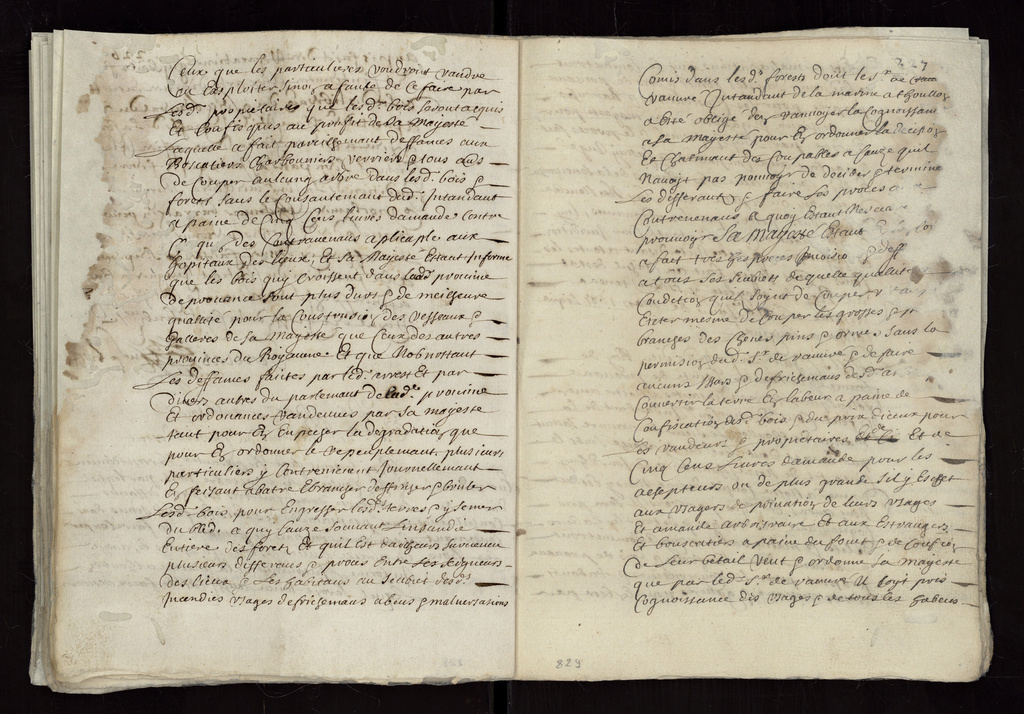 Ceux que les particuliers voudront vandre
ou Exploitter sinon a faute de ce faire par
Lesd. propriaitaires que lesd. bois seront acquis
Et Confisqués au proufit de sa Majesté
Laquelle a fait pareillement deffames aux
Boscatiers Charbonniers verriers & tous aus
de Couper aulcung arbre dans lesd. bois &
forets sans le Consantement dud. Intandant
a paine de cinq Cens livres damande Contre
des Contravenans aplicaple aux
hopitaux des lieux, Et Sa Majesté Estant Informe
que les bois quy Croissent dans lad. province
de provance sont plus durs & de meilheure
quallite pour la Construsion des vesseaux &
Galleres de sa Majesté que Ceux des autres
provinces du Royaume Et que Nobnottant
Les deffames faittes par led. arrest Et par
Divers autres du parlemant de lad. province
Et ordonances Randeues par sa majesté
tant pour En Enpecher la degradation que
pour En ordonner le Repeuplemant plusieurs
particuliers y Contreviennent Journellemant
En feisant abatre Ebrancher deffricher & bruler
Lesd. bois pour Engresser lesd. terres & y semer
du bled. a quy Cauze souvant Linsandie
Entiere des forets Et quil Est dailheurs surveneu
plusieurs differens & proces Entre les seigneurs
des lieux & Les habitans au Seubiet desd.
Incendies usages defrichemans abeus & malversations
227
Comis dans lesd. forests dont les Sr. de
vauvré Intandant de la marine a thoullon
a Esté obligé den ranvoyer la Cognoissance
a sa Majesté pour En ordonner la decision
Et Chatimant des Coupables a Cauze quil
Navoit pas pouvoir de decider & termine
Les differans & faire les proces a
Contrevenans a quoy Estant Nes
prouvoyr Sa Majesté Estant
a fait tres Expreces Inivisio & deff
a tous ses seubiets de quelle quallite
Condetion quil soyent de Couper
Eteter mesme de Couper les grosses &
branches des Chenes pins & orme sans la
permision dud. Sr. de vauvré & de faire
aucuns Essars & defrichemans
Convertir la terre En labeur a paine de
Confiscation desd. bois & du prix diceux pour
Les vandeurs & proprietaires Et de
Cinq Cens Livres damande pour les
achepteurs ou de plus grande sil y Eschet
aux usagers de privation de leurs usages
Et amande arbitraire Et aux Estrangers
Et bouscatiers a paine du fouet & de Confis
de leur betail veut & ordonne Sa majesté
que par led. Sr. de vauvré Il soyt pris
Cognoissance des usages & de tous les habeus
829